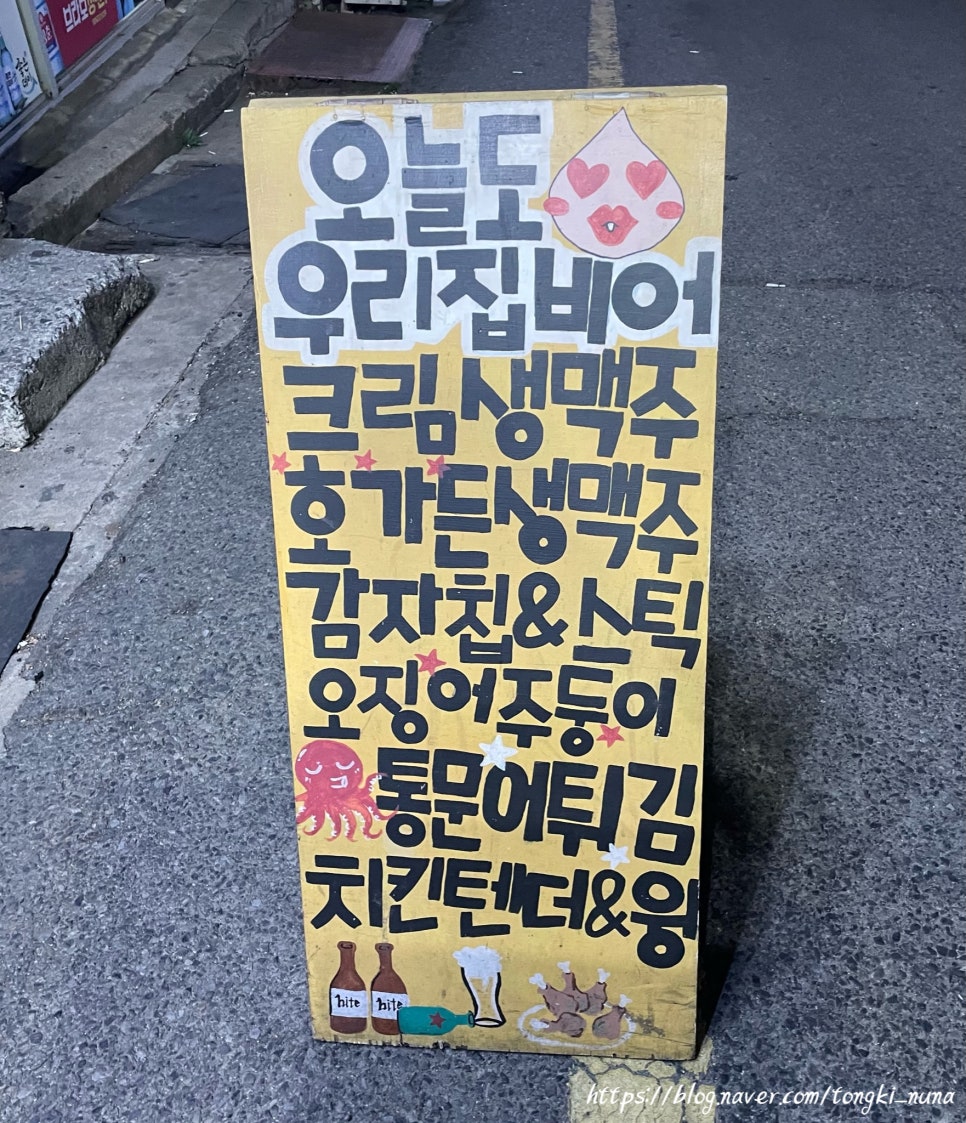 오늘도
우리집비어
크림생맥주
호가든생맥주
감자칩&스틱
오징어주둥이
통문어튀김
치킨텐더&윙
hite
hite
https://blog.naver.com/tongki_nuna